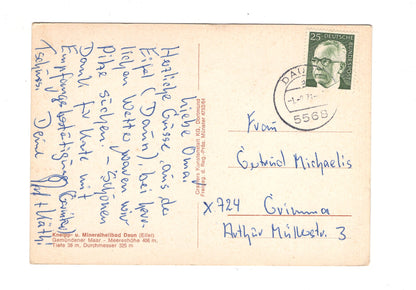 Liebe Oma,
Herzliche Grüsse aus der
Eifel (Daun), bei herr-
lichen Wetter waren wir
Pilze suchen. – Schönen
Dank für Karte mit
Empfangsbestätigung
Tschüss Deine
Kneipp- u. Mineralheilbad Daun (Eifel)
Gemündener Maar - Meereshöhe 406 m,
Tiefe 38 m, Durchmesser 325 m
25 DEUTSCHE
DAUN
5568
Frau
Gertrud Michaelis
X 724 Grimma
Arthur Müllerstr. 3